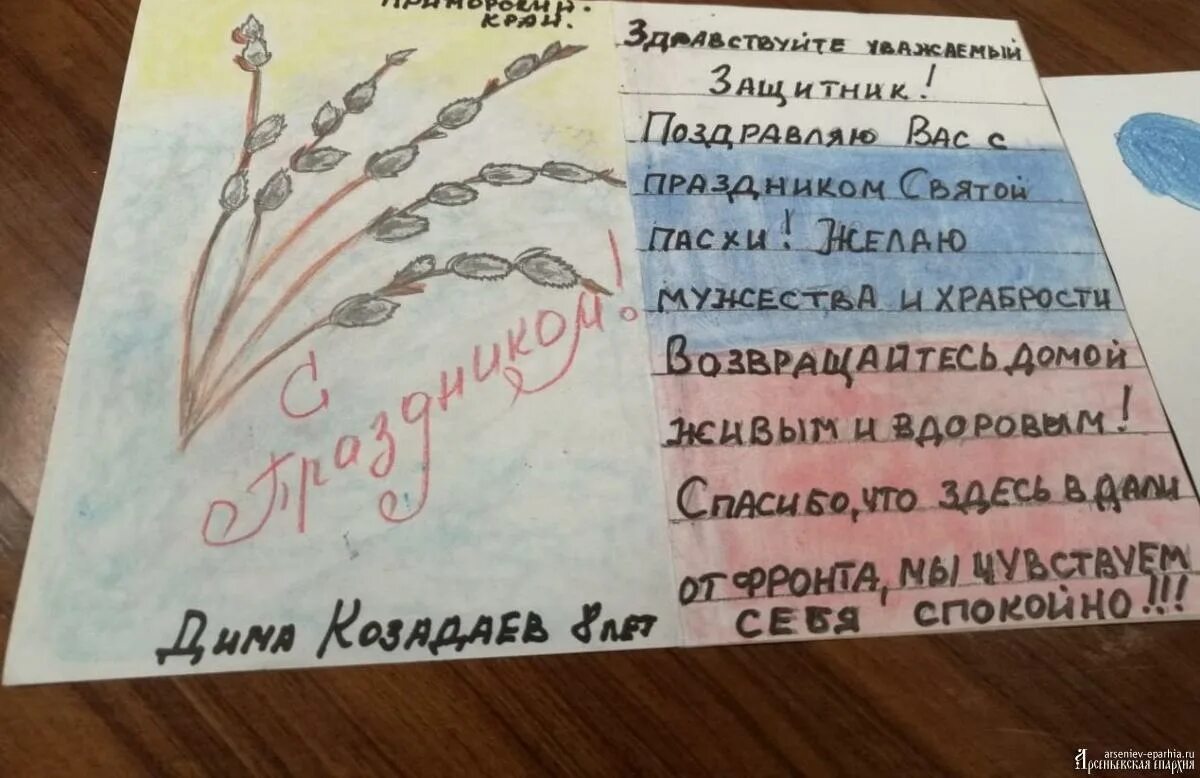 Приморский
край.
С
Праздником!
Дима Козадаев 8 лет
Здравствуйте уважаемый
Защитник!
Поздравляю Вас с
праздником Святой
пасхи! Желаю
мужества и храбрости
Возвращайтесь домой
живым и вдоровым!
Спасибо, что здесь в дали
от фронта, мы чувствуем
себя спокойно!!!
arseniev-eparhia.ru
Арсеньевская епархия